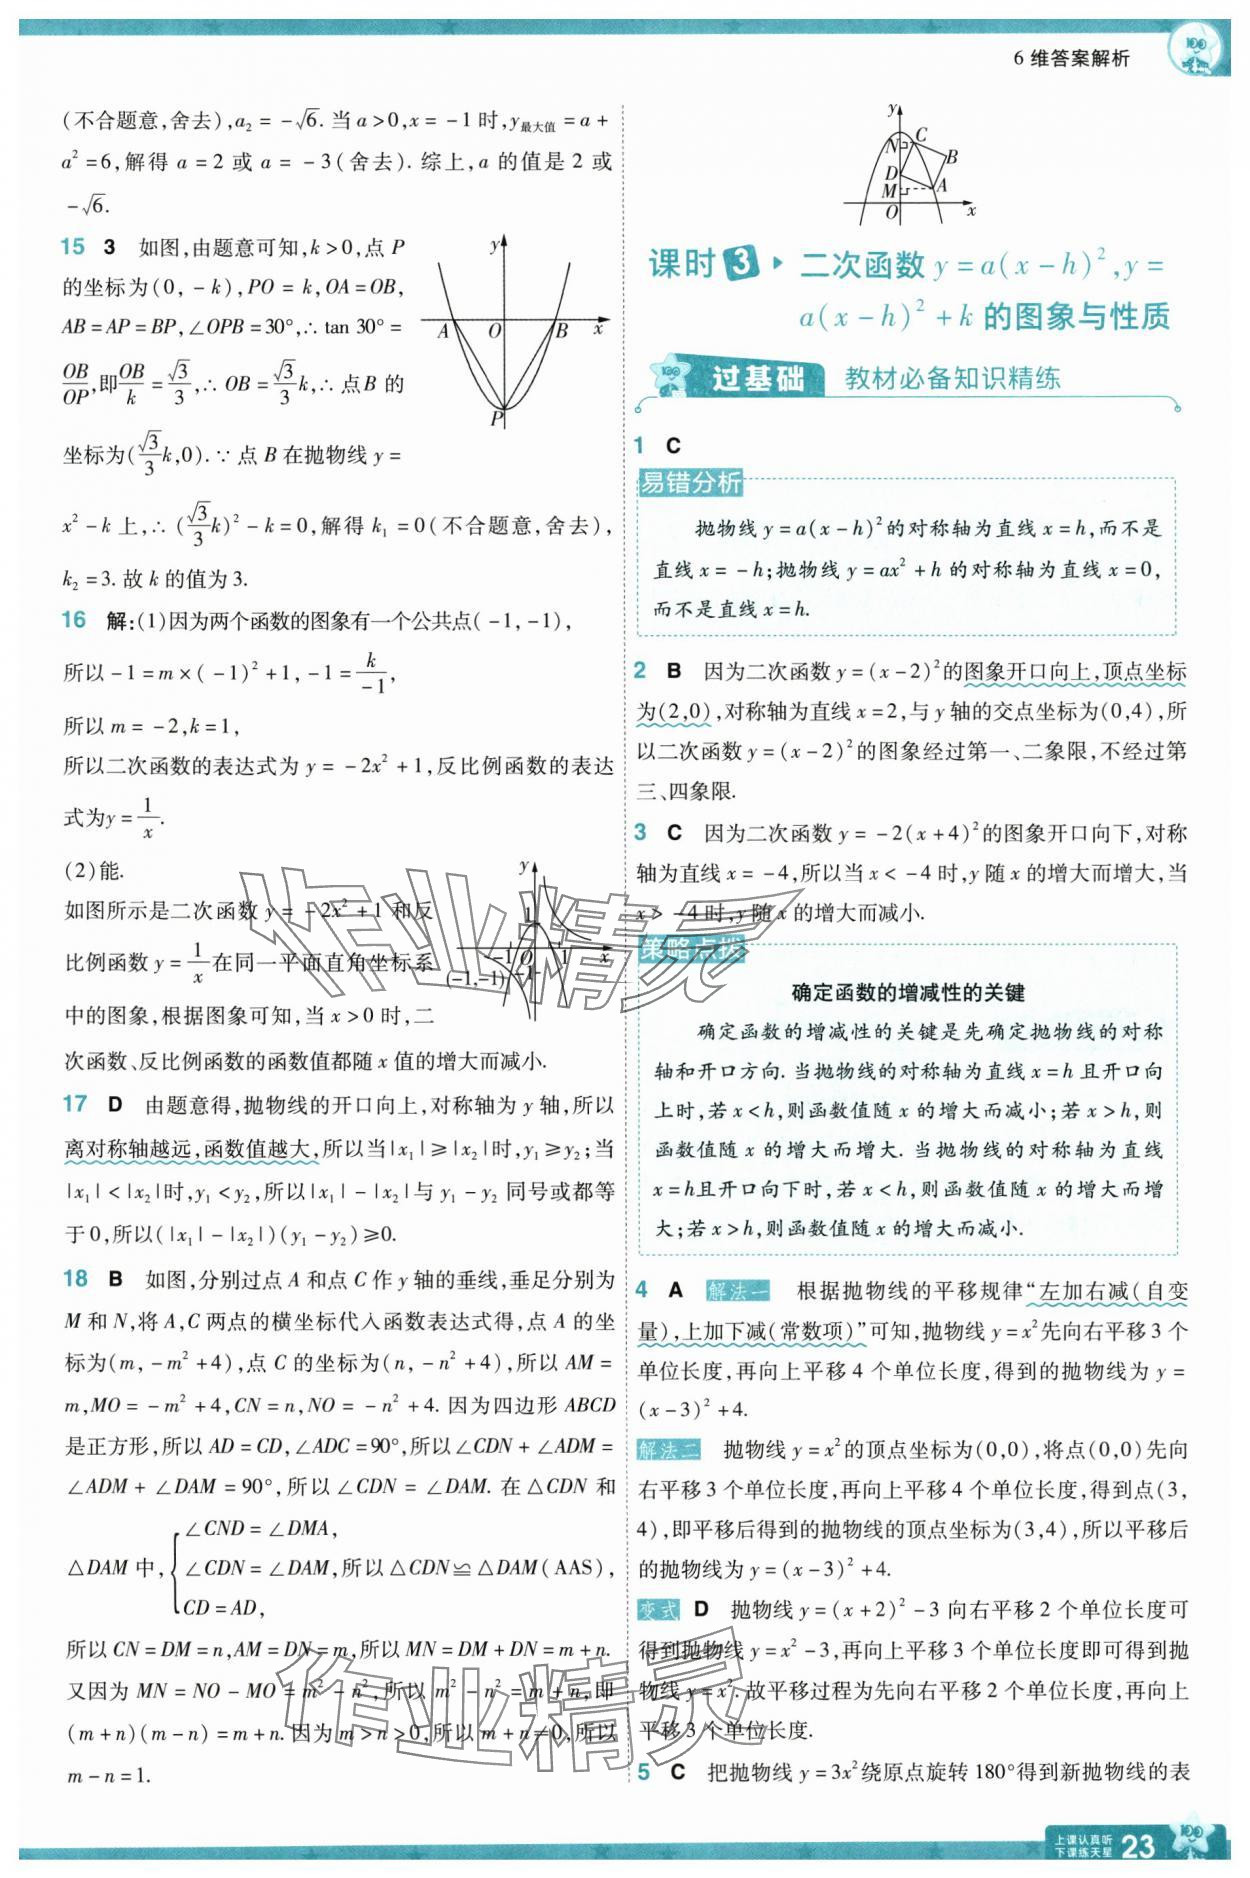 6 维答案解析
(不合题意,舍去),a₂ = -√6. 当 a>0,x = -1 时,y最大值 = a +
a² = 6,解得 a = 2 或 a = -3(舍去). 综上,a 的值是 2 或
-√6.
15 3 如图,由题意可知,k>0,点 P
的坐标为(0, -k),PO = k,OA = OB,
AB = AP = BP,∠OPB = 30°,∴ tan 30° =
OB/OP,即OB/k = √3/3,∴ OB = √3/3 k,∴ 点 B 的
坐标为(√3/3 k,0). ∵ 点 B 在抛物线 y =
x² - k 上,∴ (√3/3 k)² - k = 0,解得 k₁ = 0(不合题意,舍去),
k₂ = 3. 故 k 的值为 3.
y
A O B x
P
16 解:(1)因为两个函数的图象有一个公共点(-1, -1),
所以 -1 = m × (-1)² + 1, -1 = k/-1,
所以 m = -2,k = 1,
所以二次函数的表达式为 y = -2x² + 1,反比例函数的表达
式为y = 1/x.
(2)能.
如图所示是二次函数 y = -2x² + 1 和反
比例函数 y = 1/x 在同一平面直角坐标系
中的图象,根据图象可知,当 x>0 时,二
次函数、反比例函数的函数值都随 x 值的增大而减小.
y
1
-1 O 1 x
(-1,-1) -1
17 D 由题意得,抛物线的开口向上,对称轴为 y 轴,所以
离对称轴越远,函数值越大,所以当|x₁|≥|x₂|时,y₁≥y₂;当
|x₁|<|x₂|时,y₁<y₂,所以|x₁| - |x₂|与 y₁ - y₂ 同号或都等
于 0,所以(|x₁| - |x₂|)(y₁ - y₂)≥0.
18 B 如图,分别过点 A 和点 C 作 y 轴的垂线,垂足分别为
M 和 N,将 A,C 两点的横坐标代入函数表达式得,点 A 的坐
标为(m, -m² + 4),点 C 的坐标为(n, -n² + 4),所以 AM =
m,MO = -m² + 4,CN = n,NO = -n² + 4. 因为四边形 ABCD
是正方形,所以 AD = CD,∠ADC = 90°,所以∠CDN + ∠ADM =
∠ADM + ∠DAM = 90°,所以∠CDN = ∠DAM. 在△CDN 和
△DAM 中,{∠CND = ∠DMA,
∠CDN = ∠DAM,所以△CDN≌△DAM(AAS),
CD = AD,
所以 CN = DM = n,AM = DN = m,所以 MN = DM + DN = m + n.
又因为 MN = NO - MO = m² - n²,所以 m² - n² = m + n,即
(m + n)(m - n) = m + n. 因为 m>n>0,所以 m + n ≠ 0,所以
m - n = 1.
y
N C
B
D
M A
O x
课时3 二次函数 y = a(x - h)²,y =
a(x - h)² + k 的图象与性质
过基础 教材必备知识精练
1 C
易错分析
抛物线 y = a(x - h)²的对称轴为直线 x = h,而不是
直线 x = -h;抛物线 y = ax² + h 的对称轴为直线 x = 0,
而不是直线 x = h.
2 B 因为二次函数 y = (x - 2)²的图象开口向上,顶点坐标
为(2,0),对称轴为直线 x = 2,与 y 轴的交点坐标为(0,4),所
以二次函数 y = (x - 2)²的图象经过第一、二象限,不经过第
三、四象限.
3 C 因为二次函数 y = -2(x + 4)²的图象开口向下,对称
轴为直线 x = -4,所以当 x < -4 时,y 随 x 的增大而增大,当
x > -4 时,y 随 x 的增大而减小.
策略点拨
确定函数的增减性的关键
确定函数的增减性的关键是先确定抛物线的对称
轴和开口方向. 当抛物线的对称轴为直线 x = h 且开口向
上时,若 x<h,则函数值随 x 的增大而减小;若 x>h,则
函数值随 x 的增大而增大. 当抛物线的对称轴为直线
x = h且开口向下时,若 x<h,则函数值随 x 的增大而增
大;若 x>h,则函数值随 x 的增大而减小.
4 A 解法一 根据抛物线的平移规律“左加右减(自变
量),上加下减(常数项)”可知,抛物线 y = x²先向右平移 3 个
单位长度,再向上平移 4 个单位长度,得到的抛物线为 y =
(x - 3)² + 4.
解法二 抛物线 y = x²的顶点坐标为(0,0),将点(0,0)先向
右平移 3 个单位长度,再向上平移 4 个单位长度,得到点(3,
4),即平移后得到的抛物线的顶点坐标为(3,4),所以平移后
的抛物线为 y = (x - 3)² + 4.
变式 D 抛物线 y = (x + 2)² - 3 向右平移 2 个单位长度可
得到抛物线 y = x² - 3,再向上平移 3 个单位长度即可得到抛
物线 y = x². 故平移过程为先向右平移 2 个单位长度,再向上
平移 3 个单位长度.
5 C 把抛物线 y = 3x²绕原点旋转 180°得到新抛物线的表
作业精灵
作业精灵
上课认真听
下课练天星
23